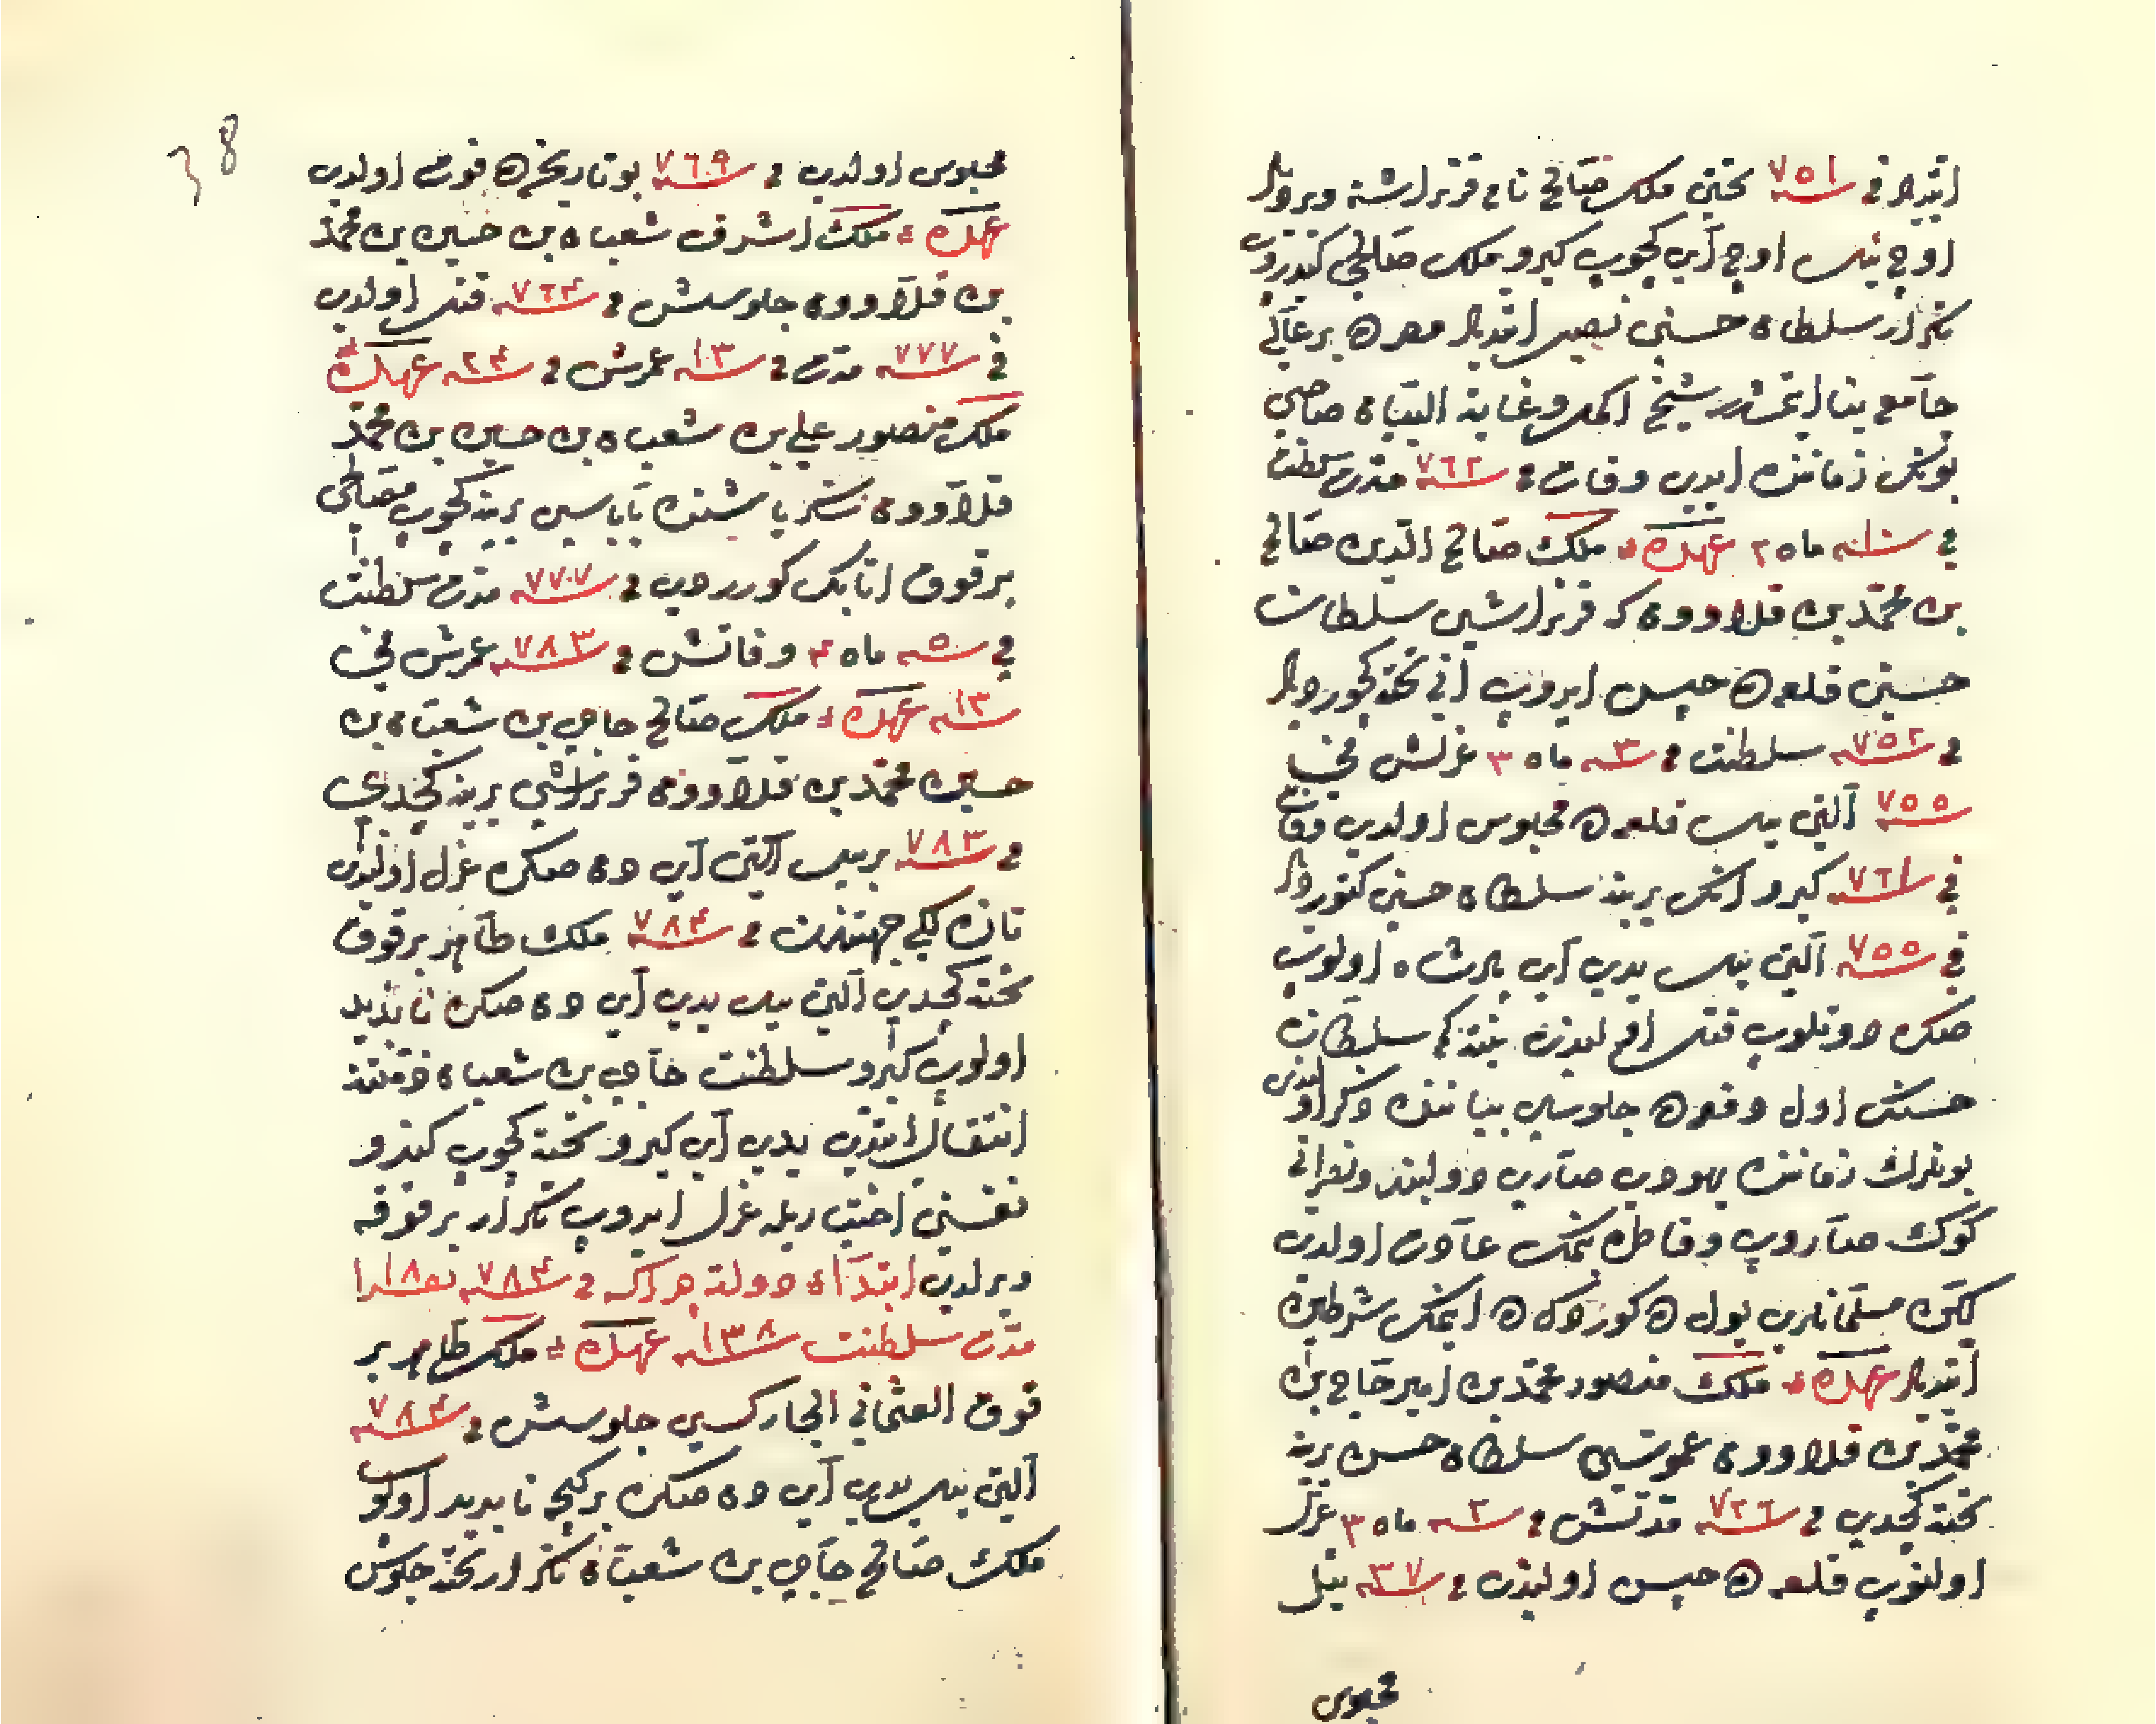 ایتدیلر فی سنه ٧٥١ تختن ملک صالح نام قرنداشنه ویردیلر
اوچ ییل اوچ آی کچوب کیرو ملک صالحی کیدروب
تکرار سلطان حسنی نصب ایتدیلر مصرده بر عالی
جامع بنا ایتمشدر شیخ اکمل و غایة البیان صاحبی
بونک زماننده ایدی وفات فی سنه ٧٦٢ مدت سلطنت
فی سنه ١٠ ماه ٢ عهد ملک صالح الدین صالح
بن محمد بن قلاوون که قرنداشی سلطان
حسنی قلعه‌ده حبس ایدوب آنی تخته کچوردیلر
فی سنه ٧٥٢ سلطنت فی سنه ٣ ماه ٣ عزلش فی
سنه ٧٥٥ آلتی ییل قلعه‌ده محبوس اولدی وفات
فی سنه ٧٦١ کیرو انک یرینه سلطان حسنی کتوردیلر
فی سنه ٧٥٥ آلتی ییل یدی آی پادشاه اولوب
صکره دوتلوب قتل اولندی نیته که سلطان
حسنک اول دفعه‌ده جلوسی بیاننده ذکر اولندی
بونلرک زماننده یهودی صاری دولبند و نصرانی
کوک صاروب و قاطره بنمک عادت اولدی
لکن مسلمانلری یولده کوردکده اینمک شرطیله
ایتدیلر عهد ملک منصور محمد بن امیر حاج بن
محمد بن قلاوون عموسی سلطان حسن یرینه
تخته کچدی فی سنه ٧٢٦ مدتش فی سنه ٢ ماه ٣ عزل
اولنوب قلعه‌ده حبس اولندی فی سنه ٣٧ ییل
محبوس
38
محبوس اولدی فی سنه ٧٦٩ بو تاریخده فوت اولدی
عهد ملک اشرف شعبان بن حسین بن محمد
بن قلاوون جلوسش فی سنه ٧٦٤ قتل اولدی
فی سنه ٧٧٧ مدت فی سنه ١٣ عمرش فی سنه ٢٤ عهد
ملک منصور علی بن شعبان بن حسین بن محمد
قلاوون سکز یاشنده باباسی یرینه کچوب مصالحی
برقوق اتابک کوردی فی سنه ٧٧٧ مدت سلطنت
فی سنه ٥ ماه ٤ وفاتش فی سنه ٧٨٣ عمرش فی
سنه ١٣ عهد ملک صالح حاجی بن شعبان بن
حسین محمد بن قلاوون قرنداشی یرینه کچدی
فی سنه ٧٨٣ بر ییل آلتی آی دن صکره عزل اولندی
فی سنه ٧٨٤ ملک ظاهر برقوق
تخته کچدی آلتی ییل یدی آی دن صکره ناپدید
اولوب کیرو سلطنت حاجی بن شعبان
انتقال ایتدی یدی آی کیرو تخته کچوب کیرو
نفسنی اختیاریله عزل ایدوب تکرار برقوقه
ویرلدی ابتداء دولة چراکسه فی سنه ٧٨٤
مدت سلطنت سنه ١٣٨ عهد ملک ظاهر بر
قوق العثمانی الجارکسی جلوسش فی سنه ٧٨٤
آلتی ییل یدی آی دن صکره بر کیجه ناپدید اولوب
ملک صالح حاجی بن شعبان تکرار تخته جلوس